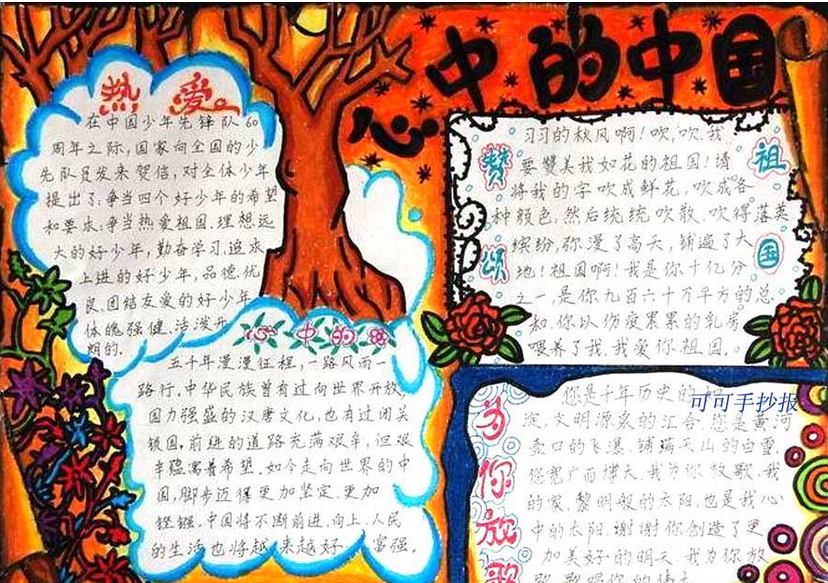 心中的中国
热爱
在中国少年先锋队60
周年之际,国家向全国的少
先队员发来贺信,对全体少年
提出了,争当四个好少年的希望
和要求,争当热爱祖国、理想远
大的好少年,勤奋学习,追求
上进的好少年,品德优
良、团结友爱的好少年
体魄强健、活泼开
朗的.
心中的
五千年漫漫征程,一路风雨一
路行.中华民族曾有过向世界开放,
国力强盛的汉唐文化,也有过闭关
锁国,前进的道路充满艰辛,但艰
辛蕴寓着希望.如今走向世界的中
国,脚步迈得更加坚定.更加
铿锵.中国将不断前进、向上,人民
的生活也将越来越好 富强。
赞颂祖国
习习的秋风啊!吹,吹.我
要赞美我如花的祖国!请
将我的字吹成鲜花,吹成各
种颜色,然后统统吹散、吹得落英
缤纷,弥漫了高天,铺遍了大
地!祖国啊!我是你十亿分
之一,是你九百六十万平方的总
和,你以伤疲累累的乳房
喂养了我,我爱你祖国。
为你放歌
您是千年历史的
淀,文明源泉的汇合.您是黄河
壶口的飞瀑,铺满天山的白雪
您宽广而博大,我为你放歌,我
的家,黎明般的太阳,也是我心
中的太阳,谢谢你创造了更
加美好的明天,我为你放
可可手抄报